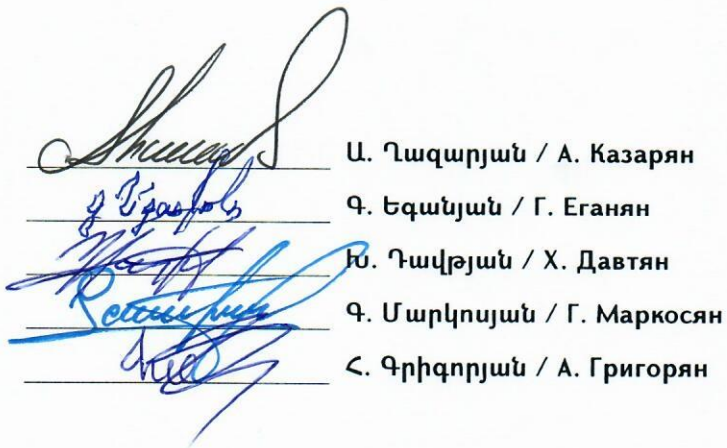 Ա. Ղազարյան / А. Казарян
Գ. Եգանյան / Г. Еганян
Խ. Դավթյան / Х. Давтян
Գ. Մարկոսյան / Г. Маркосян
Հ. Գրիգորյան / А. Григорян